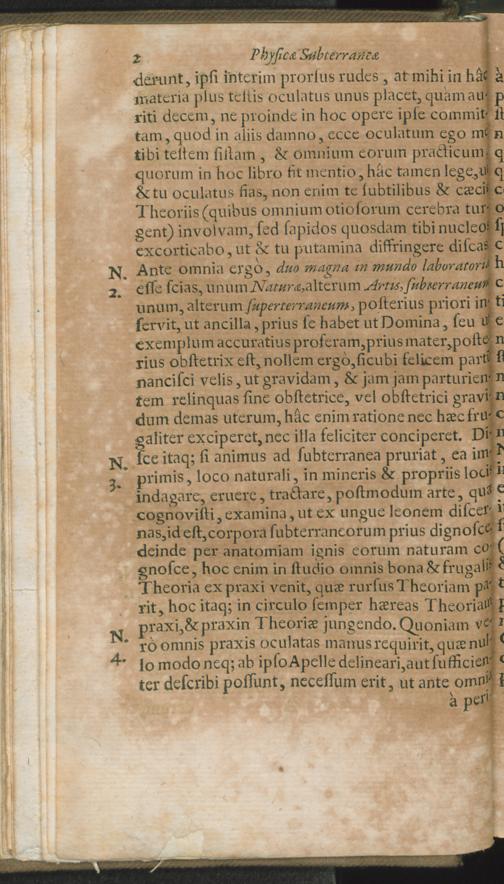 2 Physicæ Subterraneæ
derunt, ipſi interim prorſus rudes, at mihi in hâc
materia plus teſtis oculatus unus placet, quàm au-
riti decem, ne proinde in hoc opere ipſe commit-
tam, quod in aliis damno, ecce oculatum ego me
tibi teſtem ſiſtam, & omnium eorum practicum
quorum in hoc libro fit mentio, hâc tamen lege, u
& tu oculatus fias, non enim te ſubtilibus & cæcis
Theoriis (quibus omnium otioſorum cerebra tur-
gent) involvam, ſed ſapidos quosdam tibi nucleo
excorticabo, ut & tu putamina diffringere diſcas
N. Ante omnia ergò, duo magna in mundo laboratori
2. eſſe ſcias, unum Naturæ, alterum Artis, ſubterraneum
unum, alterum ſuperterraneum, poſterius priori in-
ſervit, ut ancilla, prius ſe habet ut Domina, ſeu u
exemplum accuratius proferam, prius mater, poſte-
rius obſtetrix eſt, nollem ergò, ſicubi felicem parti
nanciſci velis, ut gravidam, & jam jam parturien-
tem relinquas ſine obſtetrice, vel obſtetrici gravi
dum demas uterum, hâc enim ratione nec hæc fru-
galiter exciperet, nec illa feliciter conciperet. Di-
N. ſce itaq; ſi animus ad ſubterranea pruriat, ea im-
3. primis, loco naturali, in mineris & propriis loci
indagare, eruere, tractare, poſtmodum arte, quæ
cognoviſti, examina, ut ex ungue leonem diſcer-
nas, id eſt, corpora ſubterraneorum prius dignoſce
deinde per anatomiam ignis eorum naturam co-
gnoſce, hoc enim in ſtudio omnis bona & frugalis
Theoria ex praxi venit, quæ rurſus Theoriam pa-
rit, hoc itaq; in circulo ſemper hæreas Theoriam
praxi, & praxin Theoriæ jungendo. Quoniam ve-
N. rò omnis praxis oculatas manus requirit, quæ nul-
4. lo modo neq; ab ipſo Apelle delineari, aut ſufficien-
ter deſcribi poſſunt, neceſſum erit, ut ante omnia
à peri